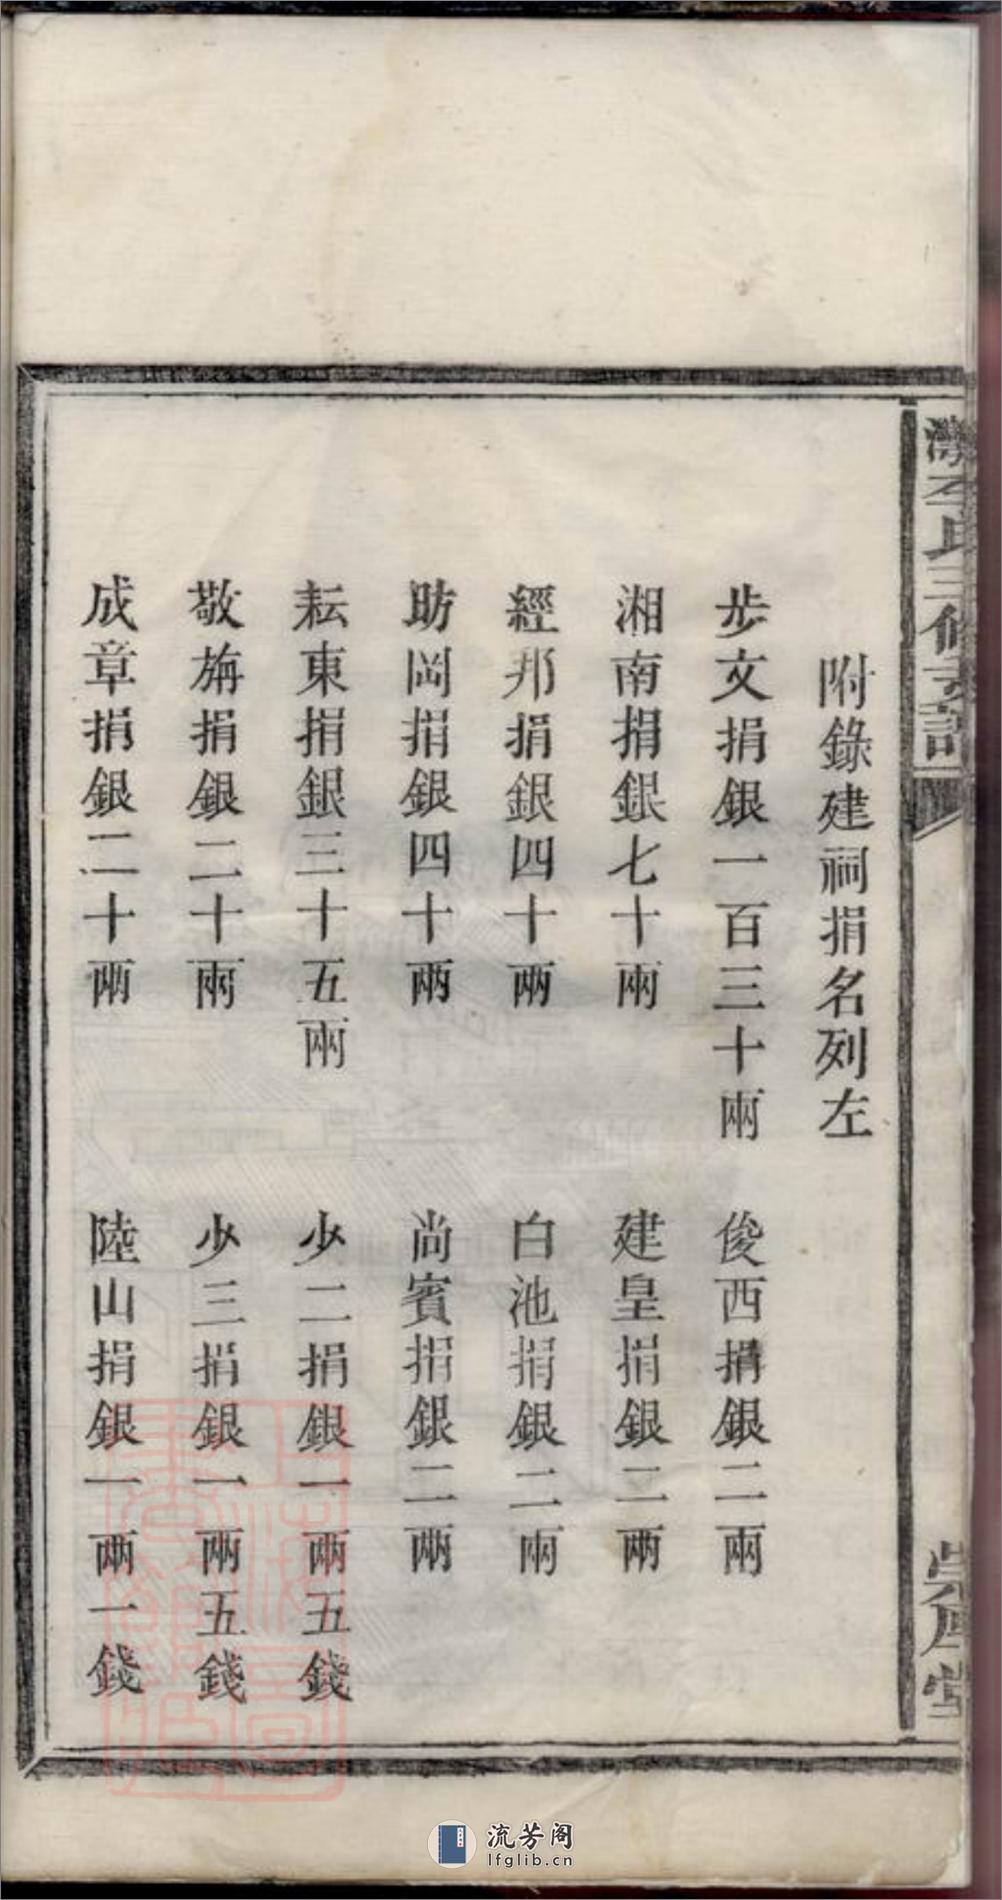 附錄建祠捐名列左
步文捐銀一百三十兩
俊西捐銀二兩
湘南捐銀七十兩
建皇捐銀二兩
經邦捐銀四十兩
白池捐銀二兩
昉岡捐銀四十兩
尚賓捐銀二兩
耘東捐銀三十五兩
少二捐銀一兩五錢
敬旃捐銀二十兩
少三捐銀一兩五錢
成章捐銀二十兩
陸山捐銀一兩一錢
氏三修支譜
堂
上海圖書館藏
流芳阁
lfglib.cn